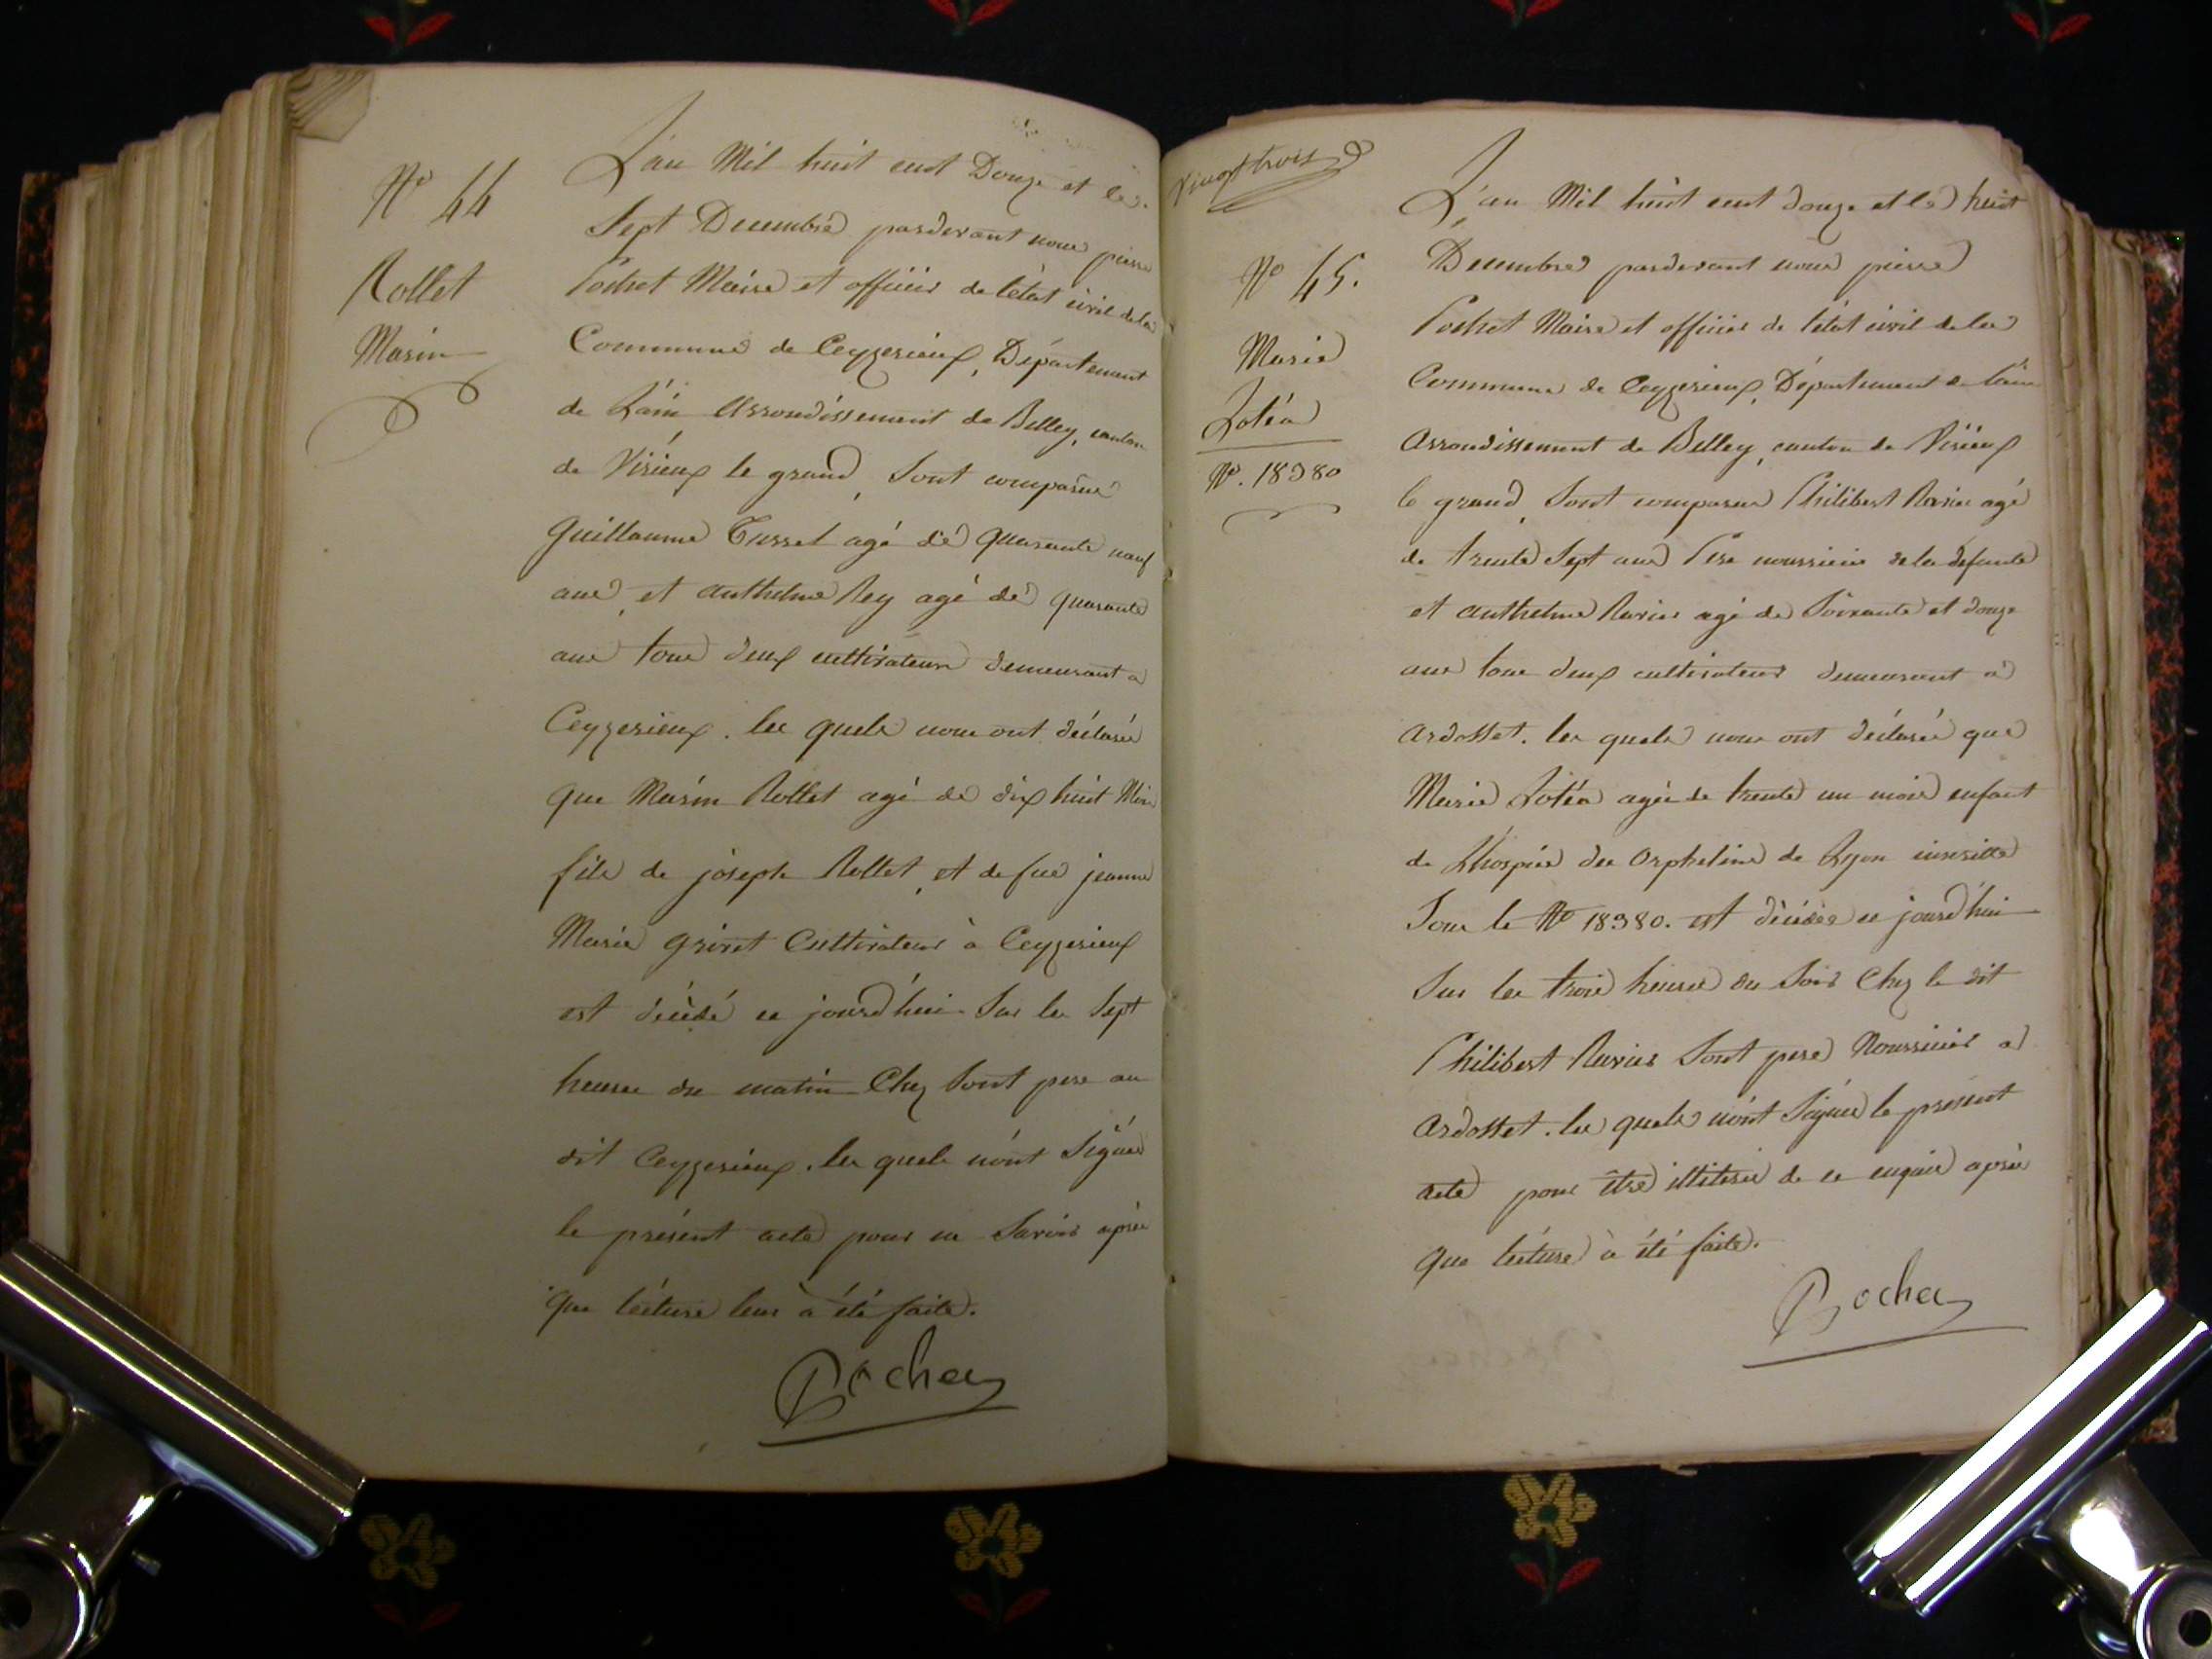 N° 44
Rollet
Marin
L'an Mil huit cent Douze et le
Sept Decembre pardevant nous pierre
Pochet Maire et officier de l'état civil de la
Commune de Ceyzerieux, Département
de L'ain Arrondissement de Belley, canton
de Virieux le grand, Sont comparus
Guillaume Tusset agé de quarante neuf
ans, et anthelme Rey agé de quarante
ans tous deux cultivateurs demeurant a
Ceyzerieux. les quels nous ont déclarés
que Marin Rollet agé de dix huit Mois
fils de joseph Rollet, et de fue jeanne
Marie Grivet Cultivateur à Ceyzerieux
est décédé ce jourd'hui Sur les Sept
heures du matin Chez Sont pere au
dit Ceyzerieux. les quels n'ont Signés
le présent acte pour ne Savoir après
que lecture leur à été faite.
Pochet
Vingt trois
N° 45.
Marie
Zotéa
N°. 18380
L'an Mil huit cent douze et le huit
Decembre pardevant nous pierre
Pochet Maire et officier de l'état civil de la
Commune de Ceyzerieux, Département de l'ain
Arrondissement de Belley, canton de Virieux
le grand, Sont comparus Philibert Ravier agé
de trente Sept ans Pere nourricier de la defunte
et anthelme Ravier agé de Soixante et douze
ans tous deux cultivateurs demeurant à
ardosset. les quels nous ont déclarés que
Marie Zotéa agée de trente un mois enfant
de L'hospice des Orphelins de Lyon inscritte
Sous le N° 18380. est décédée ce jourd'hui
Sur les trois heures du Soir Chez le dit
Philibert Ravier Sont pere Nourricier a
ardosset. les quels n'ont Signés le présent
acte pour être illiteres de ce enquis après
que lecture à été faite.
Pochet